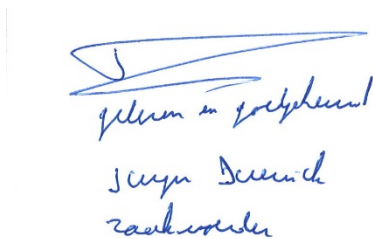 gelezen en goedgekeurd
Jurgen Dierick
zaakvoerder